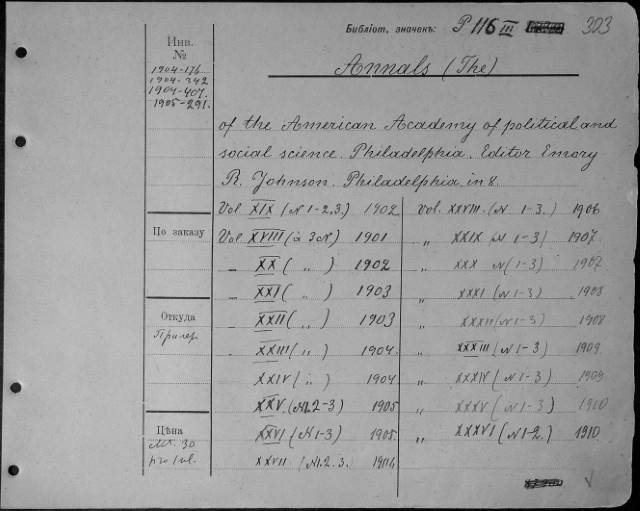 Библіот. значекъ: P 116 III 303
Инв. №
1904-176
1904-242
1904-407.
1905-291.
Annals (The)
of the American Academy of political and
social science. Philadelphia. Editor Emory
R. Johnson. Philadelphia. in 8.
По заказу
Откуда
Цѣна
Vol XIX (N 1-2.3.) 1902
Vol. XVIII (à 3N) 1901
„ XX ( „ ) 1902
„ XXI ( „ ) 1903
„ XXII ( „ ) 1903
„ XXIII ( „ ) 1904.
XXIV ( „ ) 1904
XXV (N. 2-3) 1905
XXVI (N 1-3) 1905.
XXVII (N1. 2. 3.)
Vol. XXVIII. (N. 1-3.) 1906
„ XXIX (N 1-3) 1907
„ XXX N (1-3) 1907
„ XXXI (N 1-3) 1908
„ XXXII (N 1-3) 1908
„ XXXIII (N 1-3) 1909
„ XXXIV (N 1-3) 1909
„ XXXV (N 1-3) 1910
„ XXXVI (N 1-2.) 1910